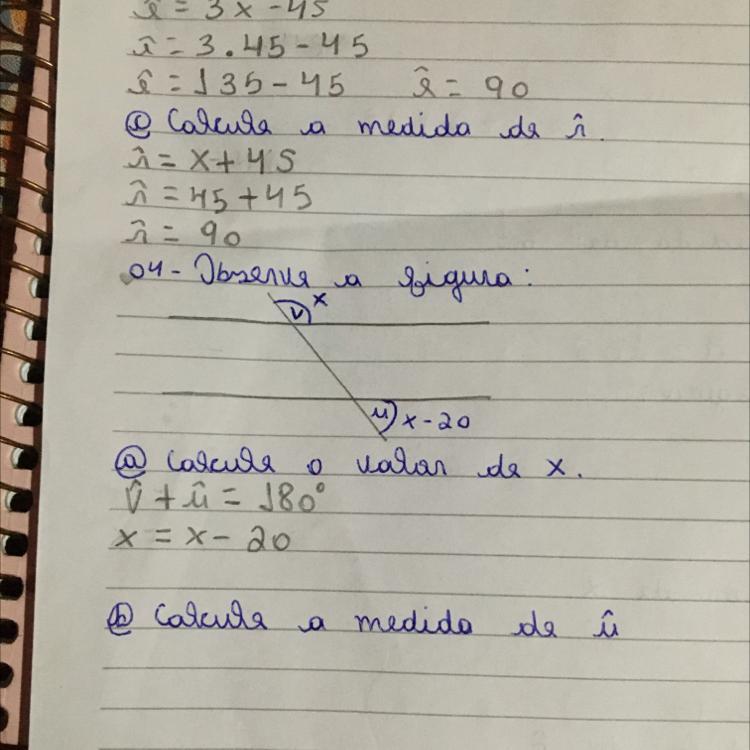 ŝ = 3x - 45
ŝ = 3.45 - 45
ŝ = 135 - 45 ŝ = 90
c Calcule a medida de r̂.
r̂ = x + 45
r̂ = 45 + 45
r̂ = 90
04- Observe a figura:
v x
u x - 20
a Calcule o valor de x.
v̂ + û = 180°
x = x - 20
b Calcule a medida de û